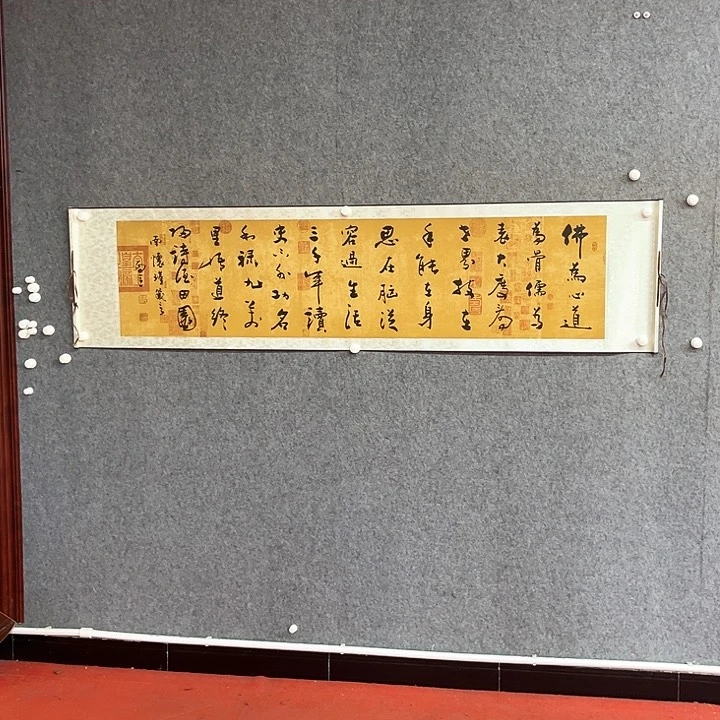 佛為心道
為骨儒為
表大度看
世界技在
手能在身
思在腦從
容過生活
三千年讀
史不外功名
利祿九萬
里悟道終
歸詩酒田園
南懷瑾箴言